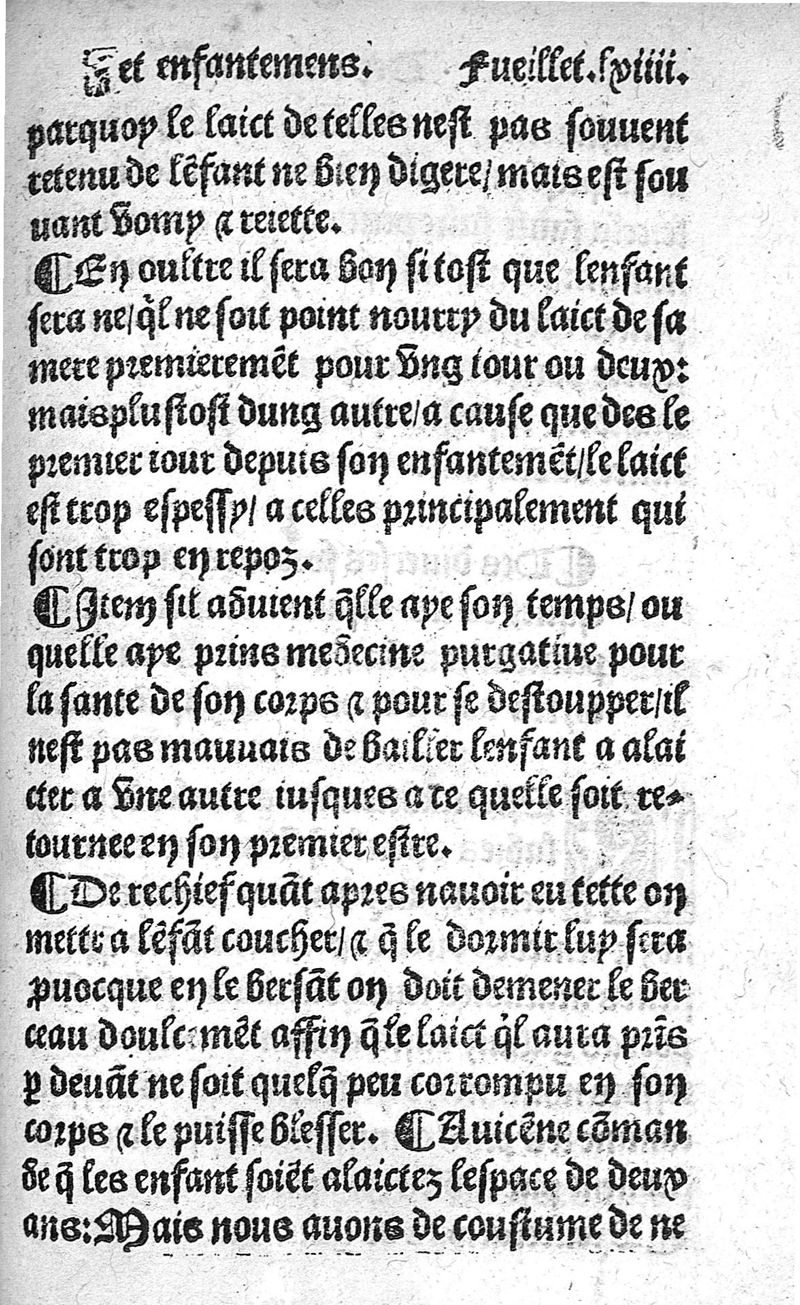 et enfantemens. Fueillet.lxiiii.
parquoy le laict de telles nest pas souuent
retenu de lẽfant ne bien digere/mais est sou
uant vomy ⁊ reiette.
¶En oultre il sera bon si tost que lenfant
sera ne/q̃l ne soit point nourry du laict de sa
mere premieremẽt pour vng iour ou deux:
mais plustost dung autre/a cause que des le
premier iour depuis son enfantemẽt/le laict
est trop espessy/ a celles principalement qui
sont trop en repoz.
¶Item sil aduient q̃lle aye son temps/ ou
quelle aye prins medecine purgatiue pour
la sante de son corps ⁊ pour se destoupper/il
nest pas mauuais de bailler lenfant a alai
cter a vne autre iusques a ce quelle soit re-
tournee en son premier estre.
¶De rechief quãt apres nauoir eu tette on
mettra lẽfãt coucher/⁊ q̃ le dormir luy sera
ꝓuocque en le bersãt on doit demener le ber
ceau doulcemẽt affin q̃ le laict q̃l aura prĩs
ꝑ deuãt ne soit quelq̃ peu corrompu en son
corps ⁊ le puisse blesser. ¶Auicẽne cõman
de q̃ les enfant soiẽt alaictez lespace de deux
ans:Mais nous auons de coustume de ne